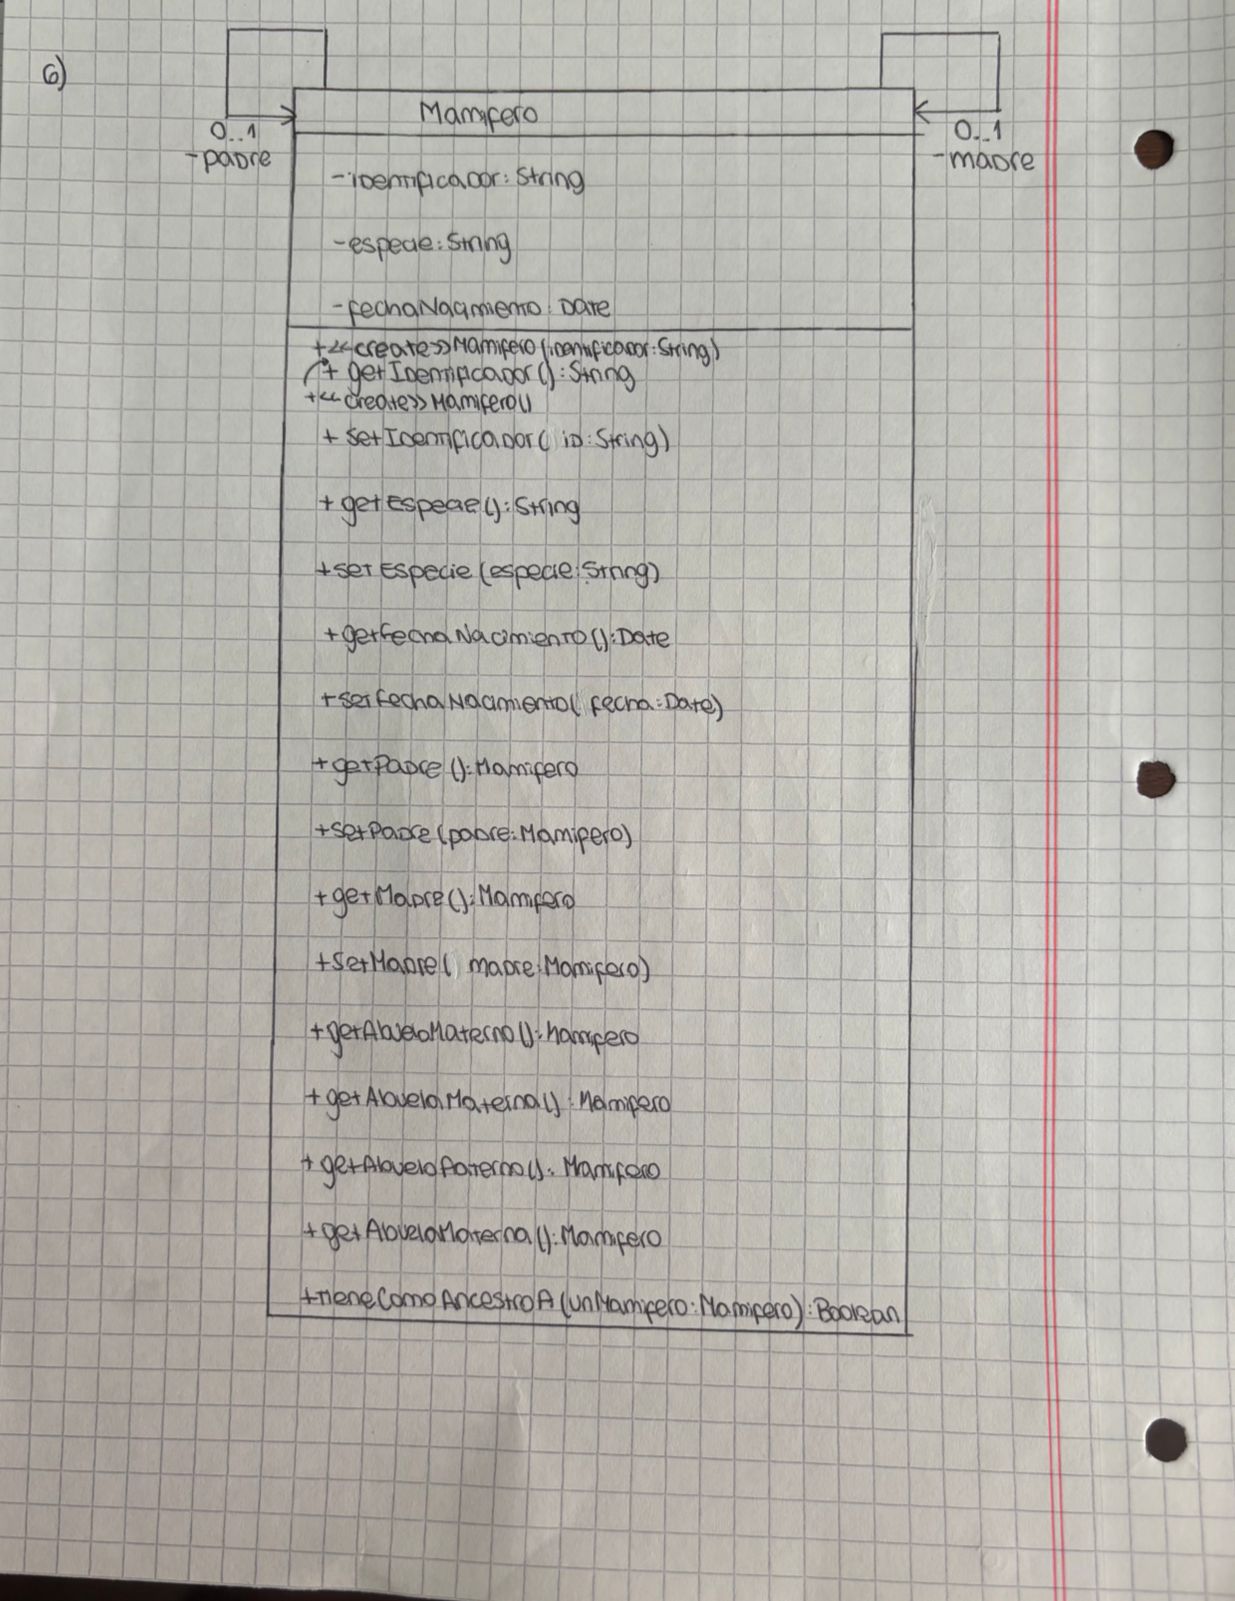 6)
Mamifero
0..1
-padre
0..1
-madre
-identificador: String
-especie: String
-fechaNacimiento: Date
+<<create>> Mamifero (identificador: String)
+ getIdentificador(): String
+<<create>> Mamifero()
+ setIdentificador( id: String)
+ getEspecie(): String
+setEspecie (especie: String)
+getFechaNacimiento(): Date
+setFechaNacimiento( fecha: Date)
+getPadre (): Mamifero
+setPadre (padre: Mamifero)
+getMadre (): Mamifero
+setMadre( madre: Mamifero)
+getAbueloMaterno(): Mamifero
+getAbuelaMaterna(): Mamifero
+ getAbueloPaterno(): Mamifero
+getAbuelaMaterna(): Mamifero
+tieneComoAncestroA (unMamifero: Mamifero): Boolean